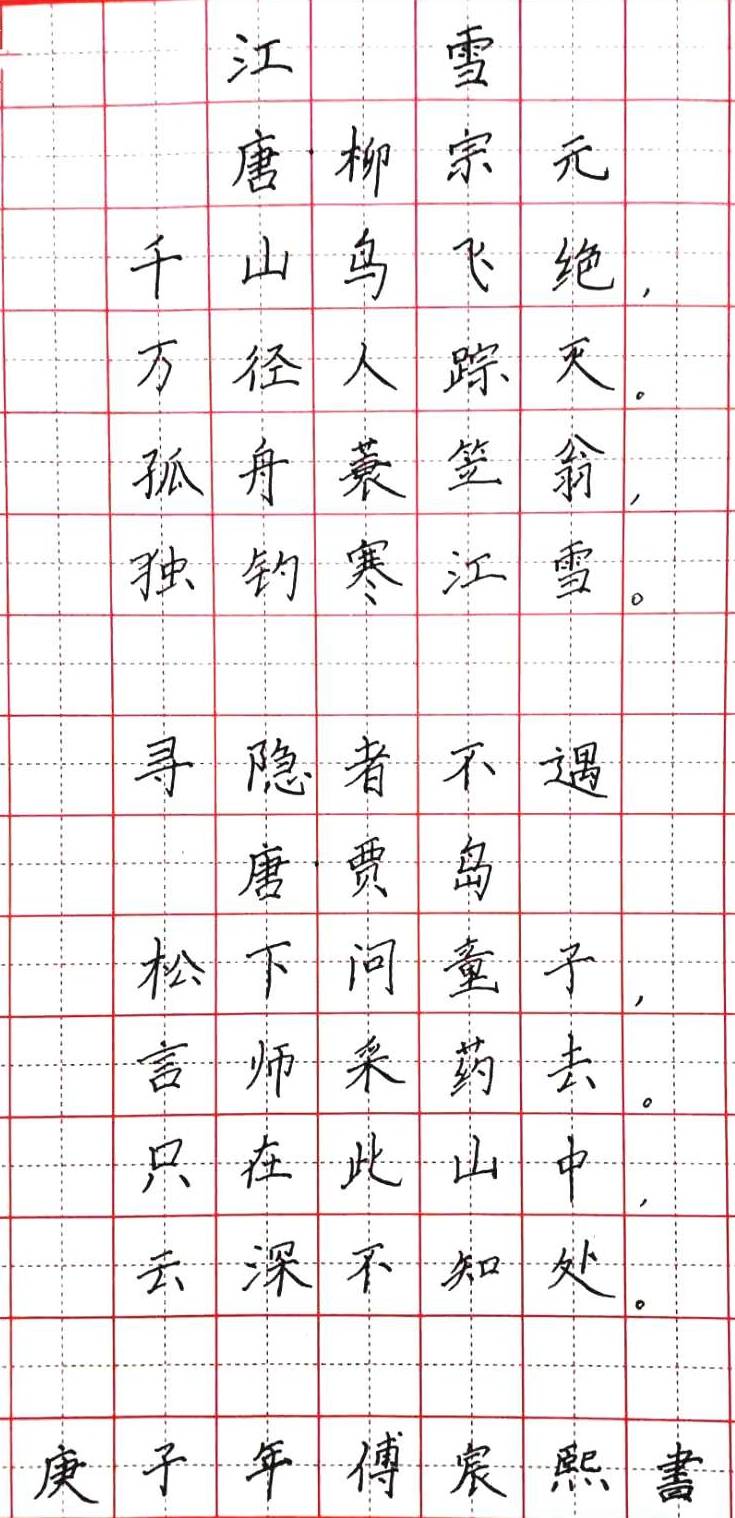 江雪
唐·柳宗元
千山鸟飞绝，
万径人踪灭。
孤舟蓑笠翁，
独钓寒江雪。
寻隐者不遇
唐·贾岛
松下问童子，
言师采药去。
只在此山中，
云深不知处。
庚子年傅宸熙書